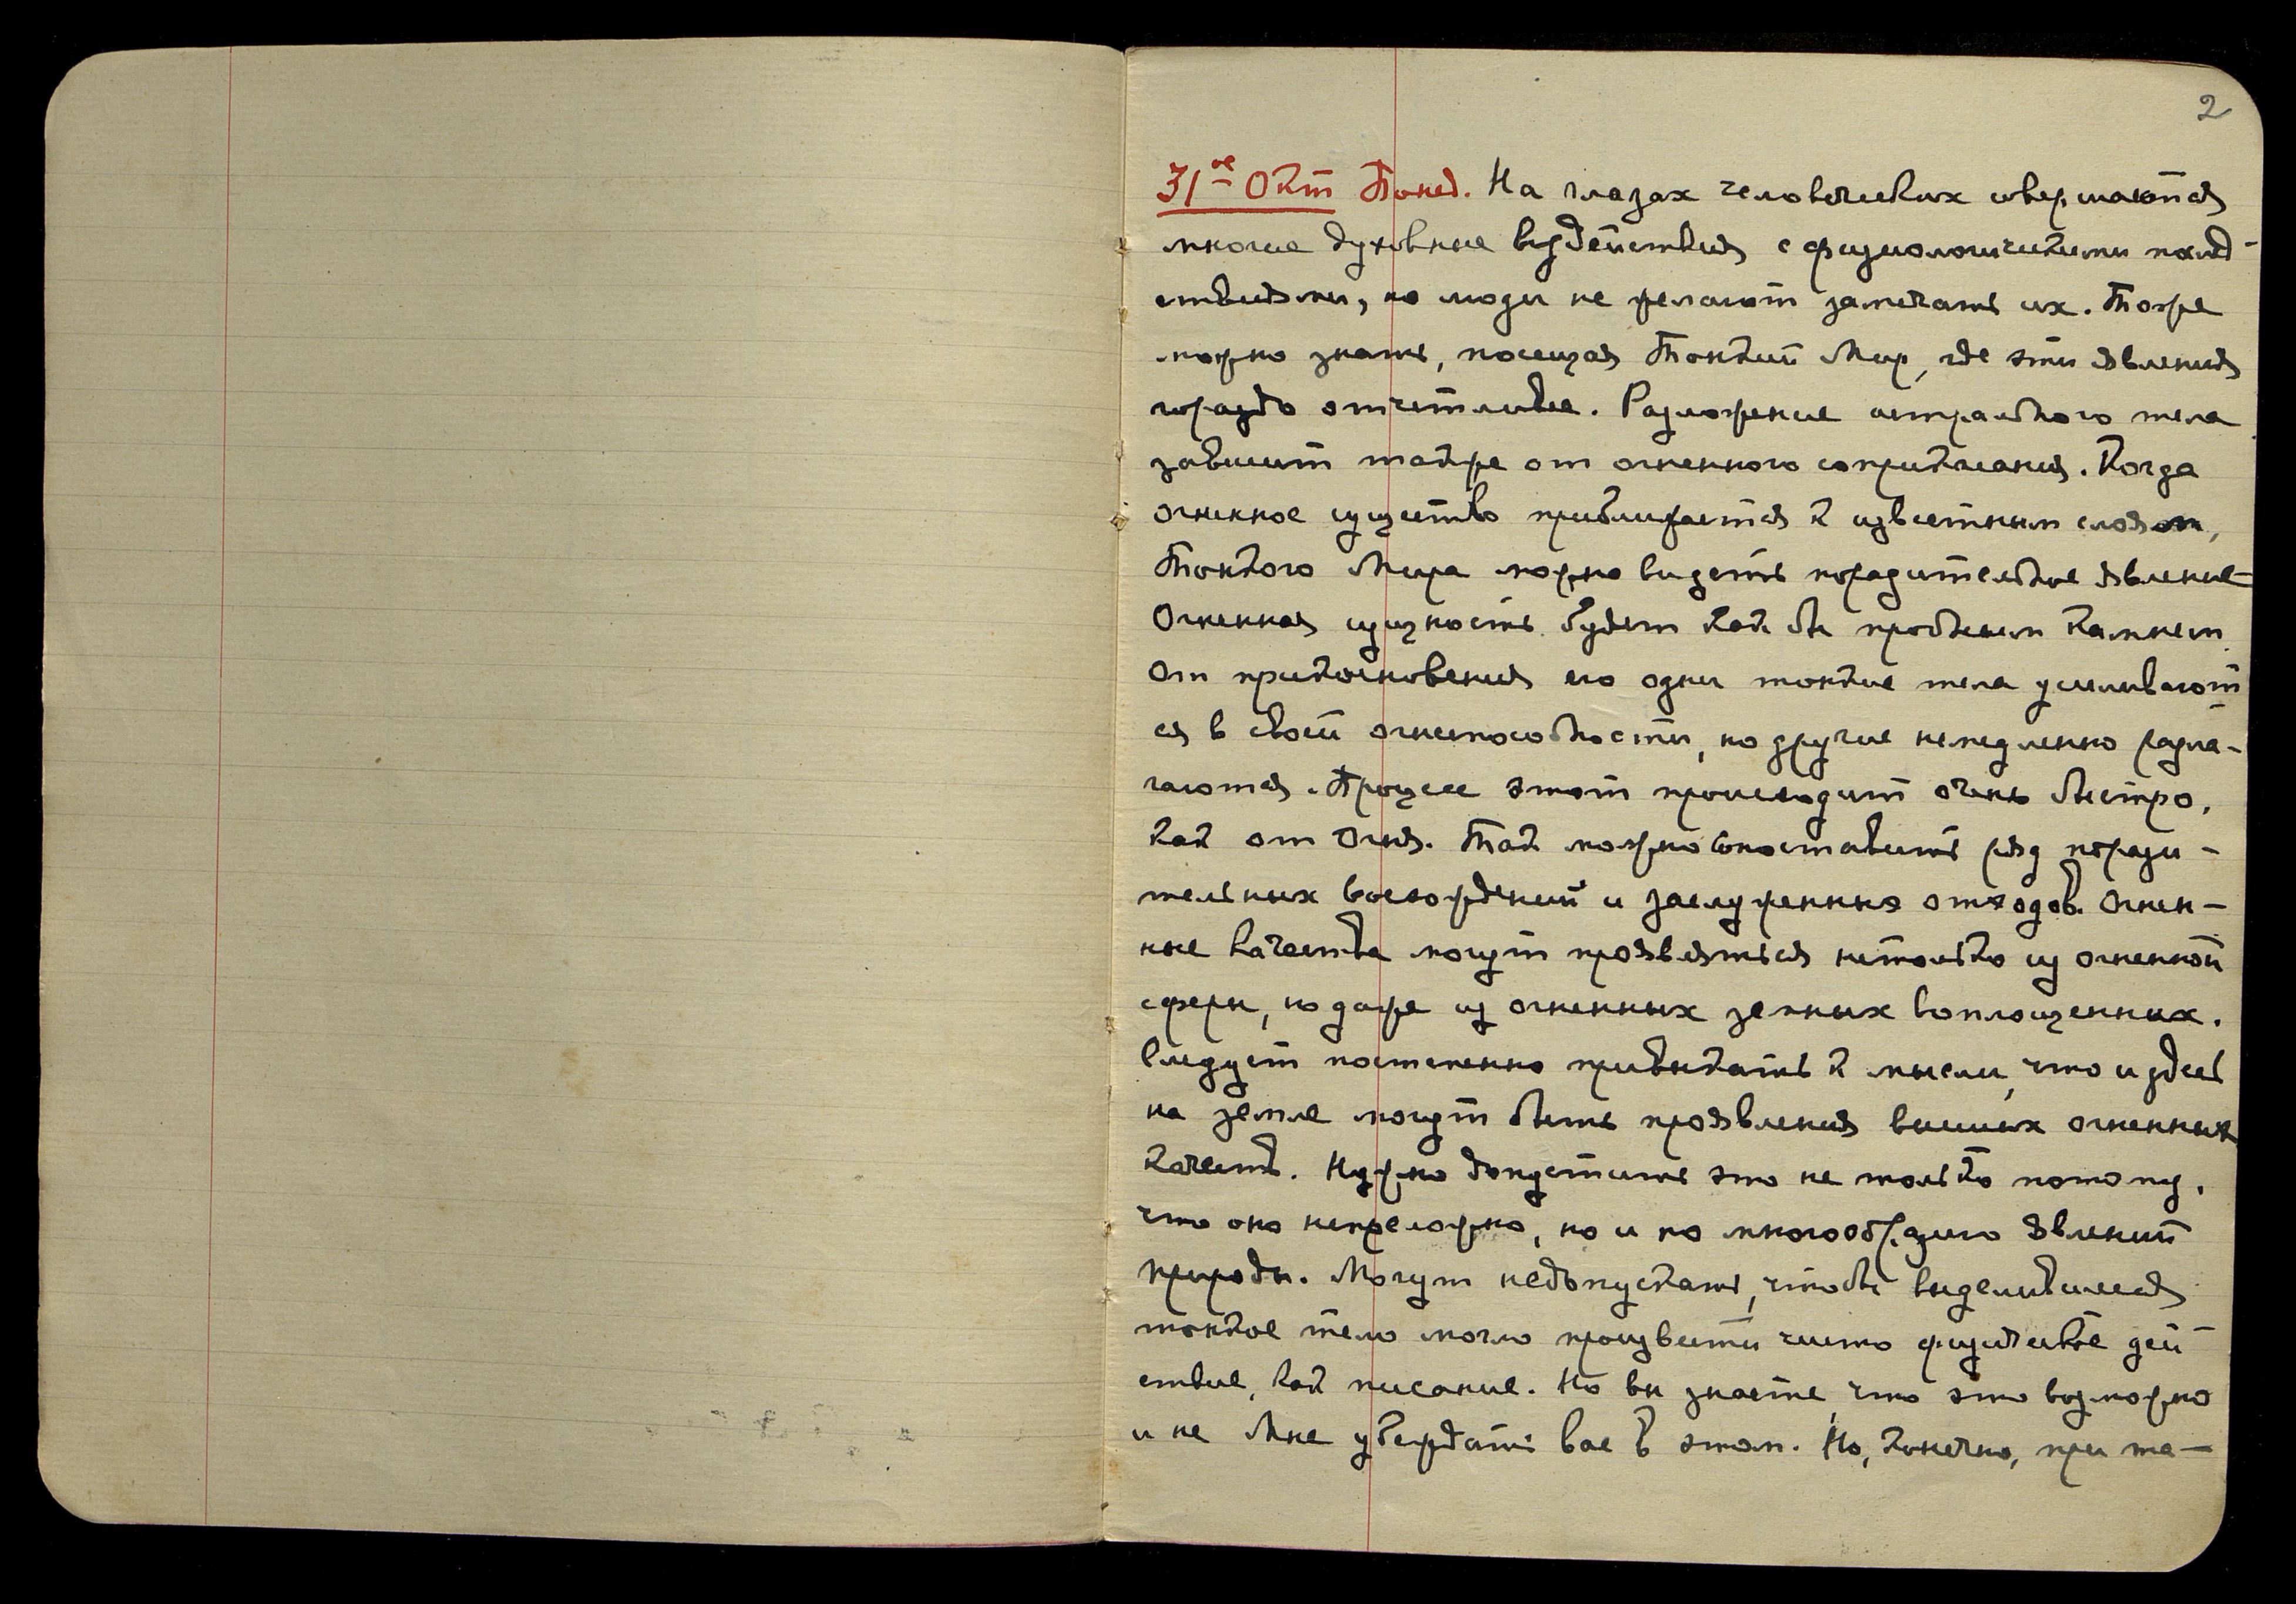 2
31ое Окт Понед. На глазах человеческих совершаются
многие духовные воздействия с физиологическими послед-
ствиями, но люди не желают замечать их. Тоже
можно знать, посещая Тонкий Мир, где эти явления
гораздо отчетливее. Разложение астрального тела
зависит также от огненного соприкасания. Когда
огненное существо приближается к известным слоям,
Тонкого Мира можно видеть поразительное явление
Огненная сущность будет как бы пробным камнем.
От прикосновения его одни тонкие тела усиливают-
ся в своей огнеспособности, но другие немедленно разла-
гаются. Процесс этот происходит очень быстро,
как от Огня. Так можно сопоставить ряд порази-
тельных восхождений и заслуженных отходов. Огнен-
ные качества могут проявляться нетолько из огненной
сферы, но даже из огненных земных воплощенных.
Следует постепенно привыкать к мысли, что и здесь
на земле могут быть проявления высших огненных
качеств. Нужно допустить это не только потому,
что оно непреложно, но и по многообразию явлений
природы. Могут недопускать, чтобы выделившееся
тонкое тело могло произвести чисто физическое дей-
ствие, как писание. Но вы знаете, что это возможно
и не Мне убеждать вас в этом. Но, конечно, при та-